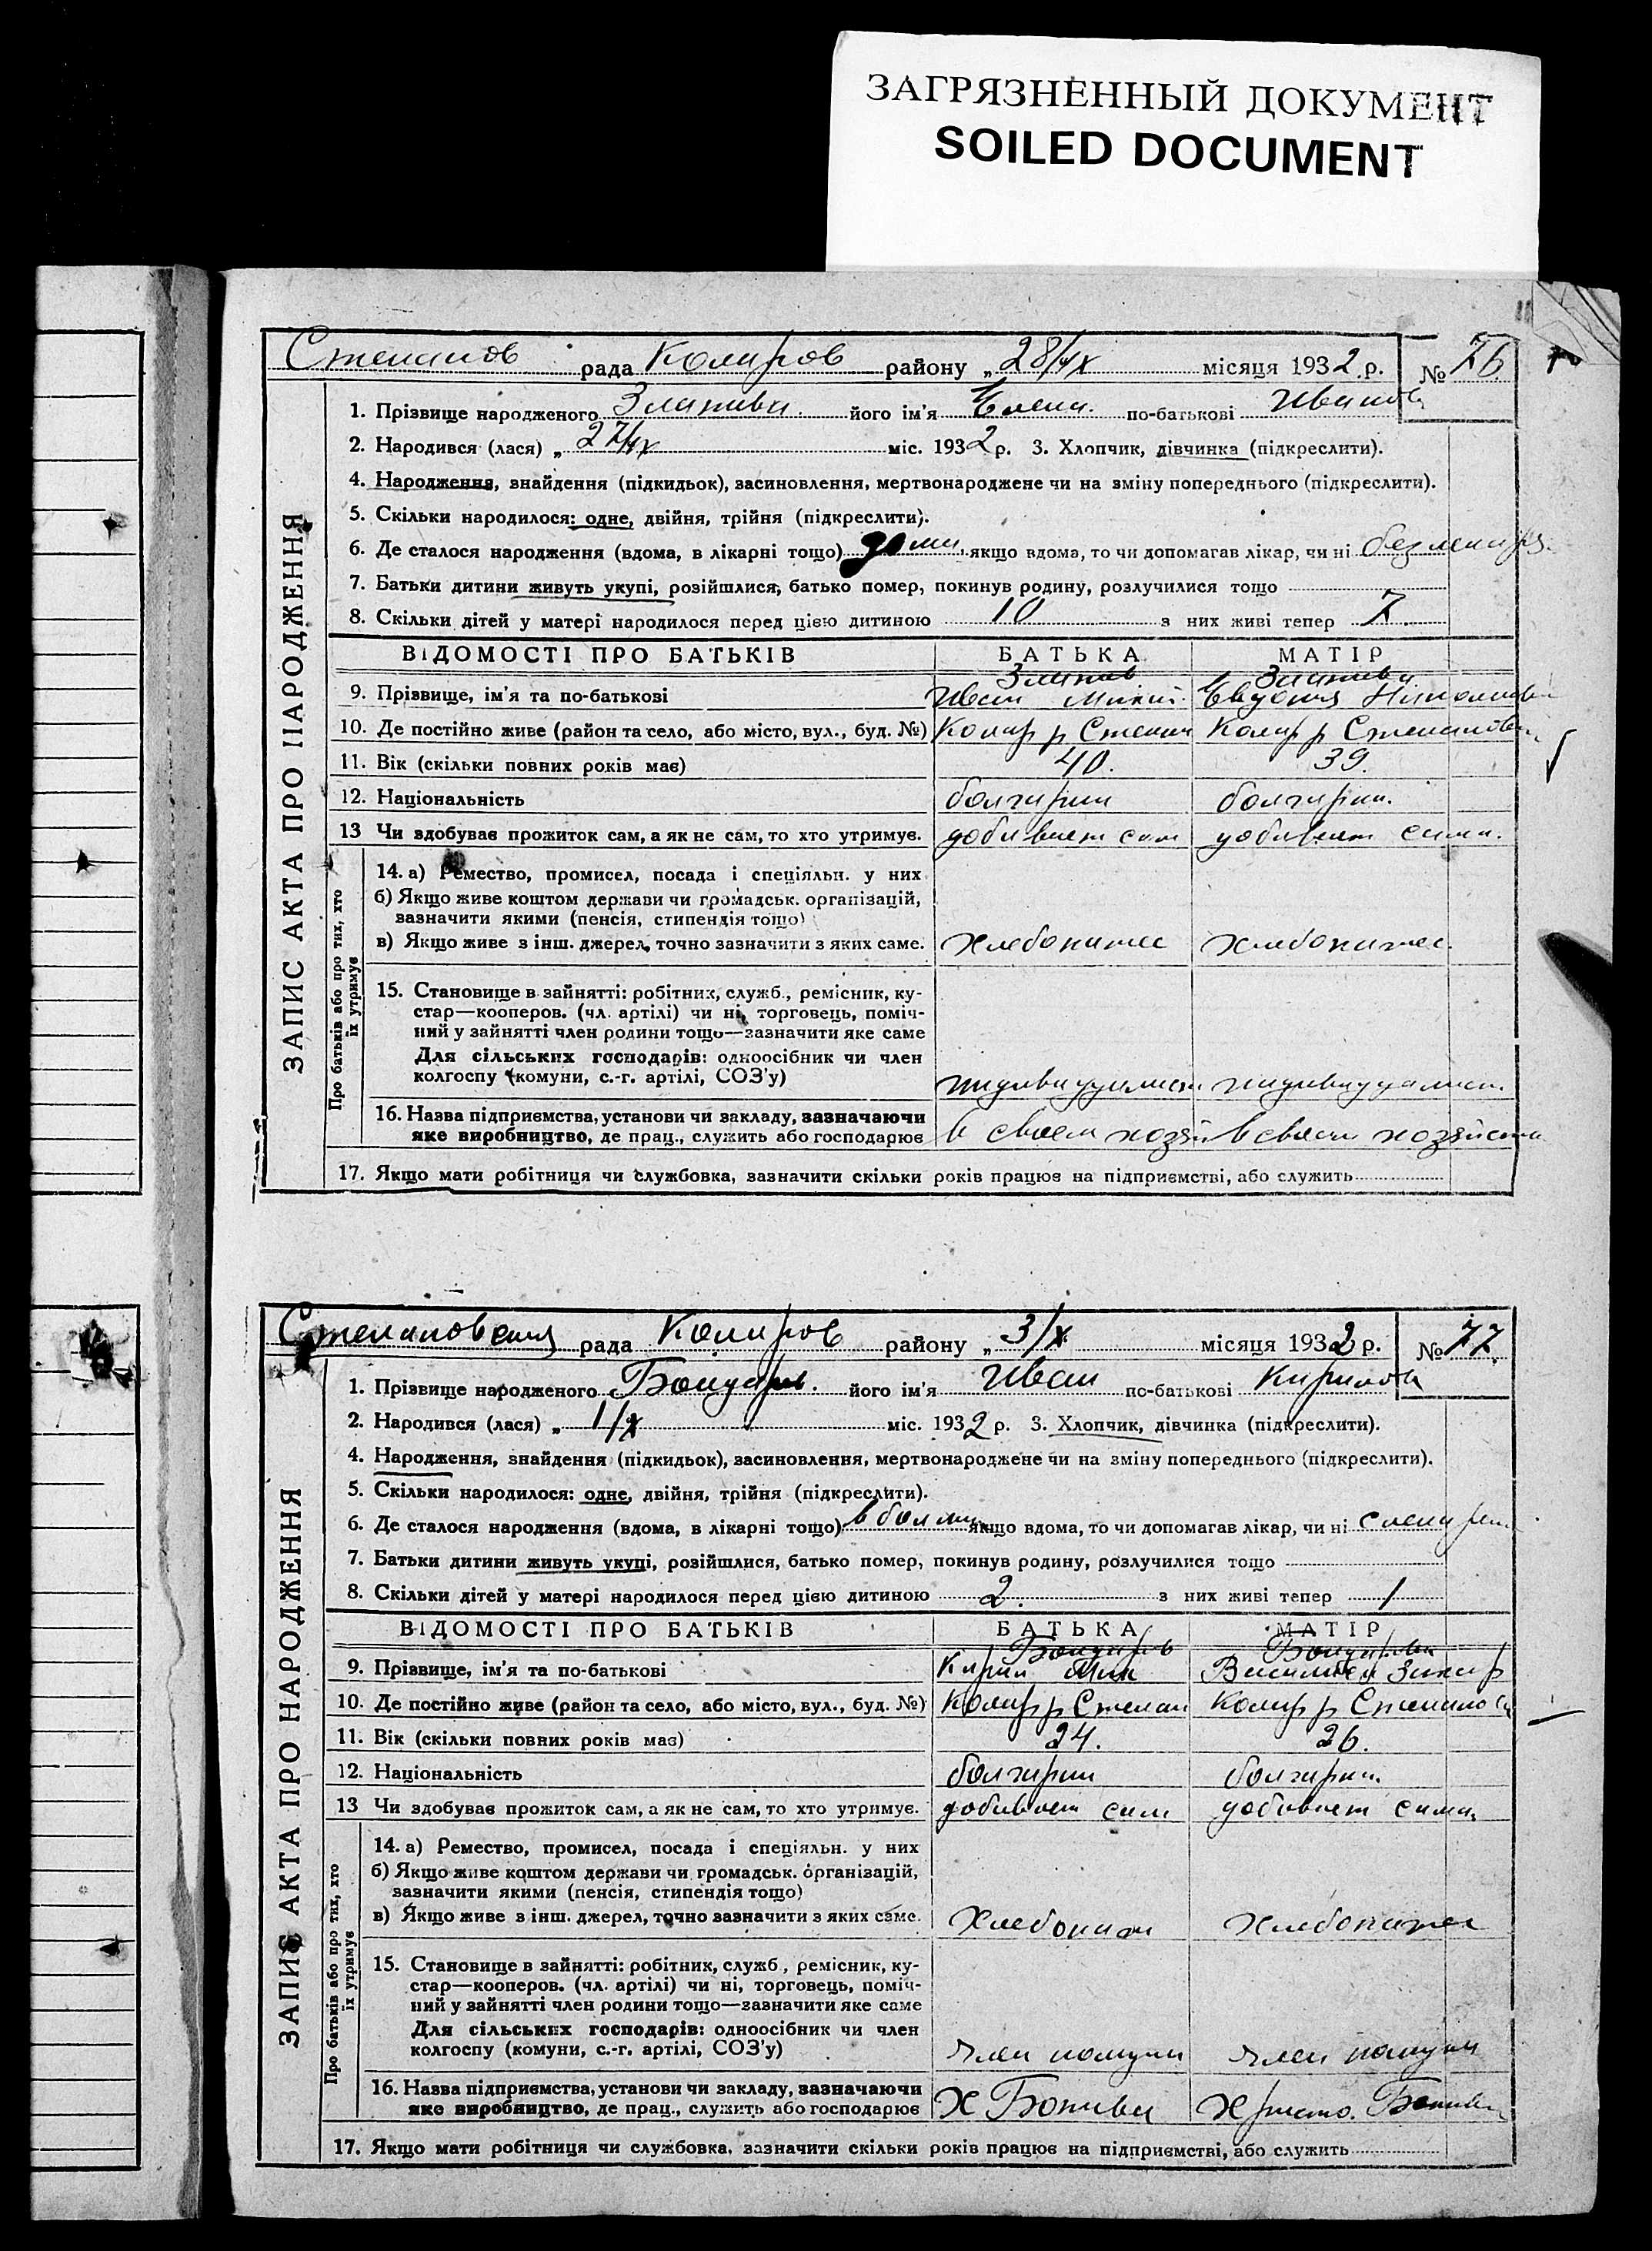 ЗАГРЯЗНЕННЫЙ ДОКУМЕНТ
SOILED DOCUMENT
Степанов рада Коларов району „ 28/IX місяця 1932 р. № 76
ЗАПИС АКТА ПРО НАРОДЖЕННЯ
1. Прізвище народженого Златива. його ім'я Елена. по-батькові Иванов
2. Народився (лася) „ 27/IX міс. 1932 р. 3. Хлопчик, дівчинка (підкреслити).
4. Народження, знайдення (підкидьок), засиновлення, мертвонароджене чи на зміну попереднього (підкреслити).
5. Скільки народилося: одне, двійня, трійня (підкреслити).
6. Де сталося народження (вдома, в лікарні тощо) дома, якщо вдома, то чи допомагав лікар, чи ні без лекаря.
7. Батьки дитини живуть укупі, розійшлися, батько помер, покинув родину, розлучилися тощо
8. Скільки дітей у матері народилося перед цією дитиною 10 з них живі тепер 7
ВІДОМОСТІ ПРО БАТЬКІВ БАТЬКА МАТІР
9. Прізвище, ім'я та по-батькові Иван Евдокия Николаев
10. Де постійно живе (район та село, або місто, вул., буд. №) Колар р Степан Колар р Степановка
11. Вік (скільки повних років має) 40. 39.
12. Національність болгарин болгарка.
13 Чи здобував прожиток сам, а як не сам, то хто утримує. добивает сам добивает сама.
Про батьків або про тих, хто їх утримує
14. а) Ремество, промисел, посада і спеціяльн. у них
б) Якщо живе коштом держави чи громадськ. організацій,
зазначити якими (пенсія, стипендія тощо)
в) Якщо живе з інш. джерел, точно зазначити з яких саме. хлебопашес хлебопашес.
15. Становище в зайнятті: робітних, служб., ремісник, ку-
стар—кооперов. (чл. артілі) чи ні, торговець, поміч-
ний у зайнятті член родини тощо—зазначити яке саме
Для сільських господарів: одноосібник чи член
колгоспу (комуни, с.-г. артілі, СОЗ'у) индивидуалист индивидуалист.
16. Назва підприємства, установи чи закладу, зазначаючи
яке виробництво, де прац., служить або господарює в своем хозяй в своем хозяйстве
17. Якщо мати робітниця чи службовка, зазначити скільки років працює на підприємстві, або служить
Степановская рада Коларов району „ 3/X місяця 1932 р. № 77.
ЗАПИС АКТА ПРО НАРОДЖЕННЯ
1. Прізвище народженого Бондарь. його ім'я Иван по-батькові Кирилов
2. Народився (лася) „ 1/X міс. 1932 р. 3. Хлопчик, дівчинка (підкреслити).
4. Народження, знайдення (підкидьок), засиновлення, мертвонароджене чи на зміну попереднього (підкреслити).
5. Скільки народилося: одне, двійня, трійня (підкреслити).
6. Де сталося народження (вдома, в лікарні тощо) в болни якщо вдома, то чи допомагав лікар, чи ні
7. Батьки дитини живуть укупі, розійшлися, батько помер, покинув родину, розлучилися тощо
8. Скільки дітей у матері народилося перед цією дитиною 2. з них живі тепер 1
ВІДОМОСТІ ПРО БАТЬКІВ БАТЬКА МАТІР
Бондаров Бондарова
9. Прізвище, ім'я та по-батькові Кирил Мих Василиса Захар
10. Де постійно живе (район та село, або місто, вул., буд. №) Колар р Степан Колар р Степановка
11. Вік (скільки повних років має) 24. 26.
12. Національність болгарин болгарка.
13 Чи здобував прожиток сам, а як не сам, то хто утримує. добивает сам добивает сама
Про батьків або про тих, хто їх утримує
14. а) Ремество, промисел, посада і спеціяльн. у них
б) Якщо живе коштом держави чи громадськ. організацій,
зазначити якими (пенсія, стипендія тощо)
в) Якщо живе з інш. джерел, точно зазначити з яких саме. Хлебопаш Хлебопашес
15. Становище в зайнятті: робітник, служб., ремісник, ку-
стар—кооперов. (чл. артілі) чи ні, торговець, поміч-
ний у зайнятті член родини тощо—зазначити яке саме
Для сільських господарів: одноосібник чи член
колгоспу (комуни, с.-г. артілі, СОЗ'у) член комуни член комуни
16. Назва підприємства, установи чи закладу, зазначаючи
яке виробництво, де прац., служить або господарює Х Ботева Христо. Ботева
17. Якщо мати робітниця чи службовка, зазначити скільки років працює на підприємстві, або служить